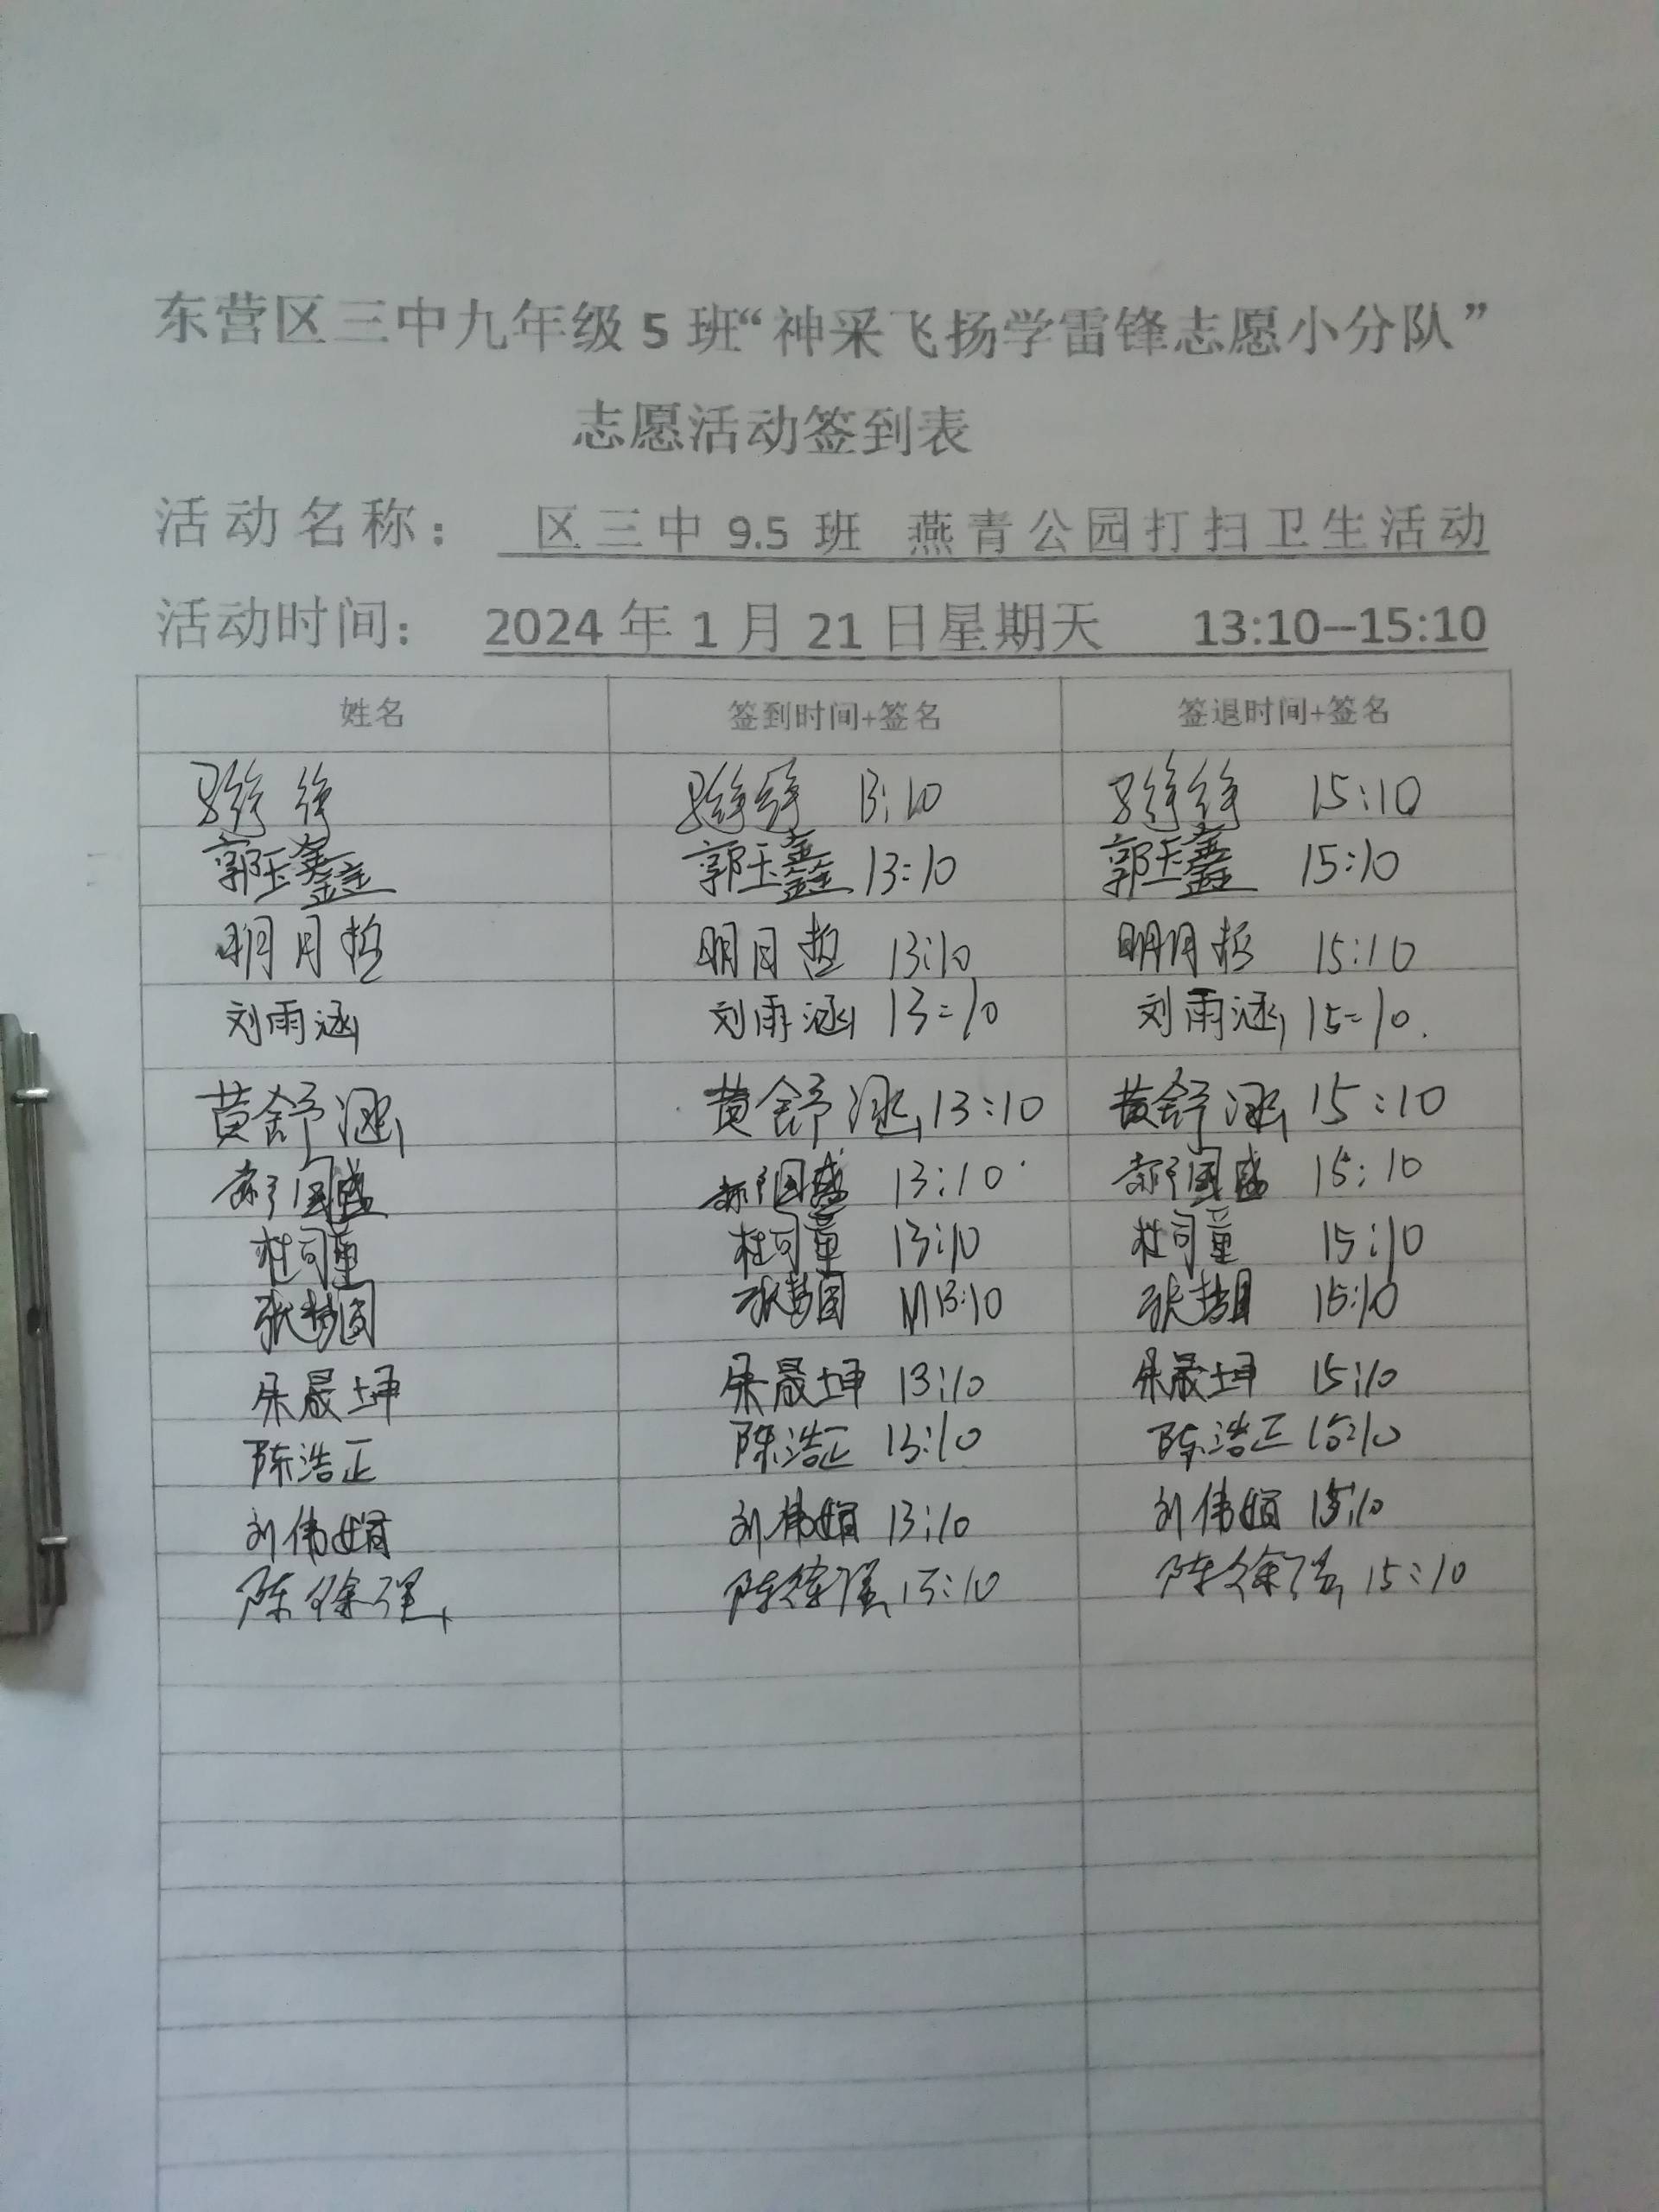 东营区三中九年级 5 班“神采飞扬学雷锋志愿小分队”
志愿活动签到表
活动名称： 区三中 9.5 班 燕青公园打扫卫生活动
活动时间： 2024 年 1 月 21 日星期天 13:10—15:10
姓名 签到时间+签名 签退时间+签名
13:10 15:10
郭玉鑫 郭玉鑫 13:10 郭玉鑫 15:10
明月哲 明月哲 13:10 明月哲 15:10
刘雨涵 刘雨涵 13:10 刘雨涵 15:10.
黄舒涵 黄舒涵 13:10 黄舒涵 15:10
国盛 国盛 13:10 国盛 15:10
杜司童 杜司童 13:10 杜司童 15:10
张梦圆 张梦圆 13:10 张梦圆 15:10
朱晟坤 朱晟坤 13:10 朱晟坤 15:10
陈浩正 陈浩正 13:10 陈浩正 15:10
刘伟娟 刘伟娟 13:10 刘伟娟 15:10
陈徐强 陈徐强 13:10 陈徐强 15:10